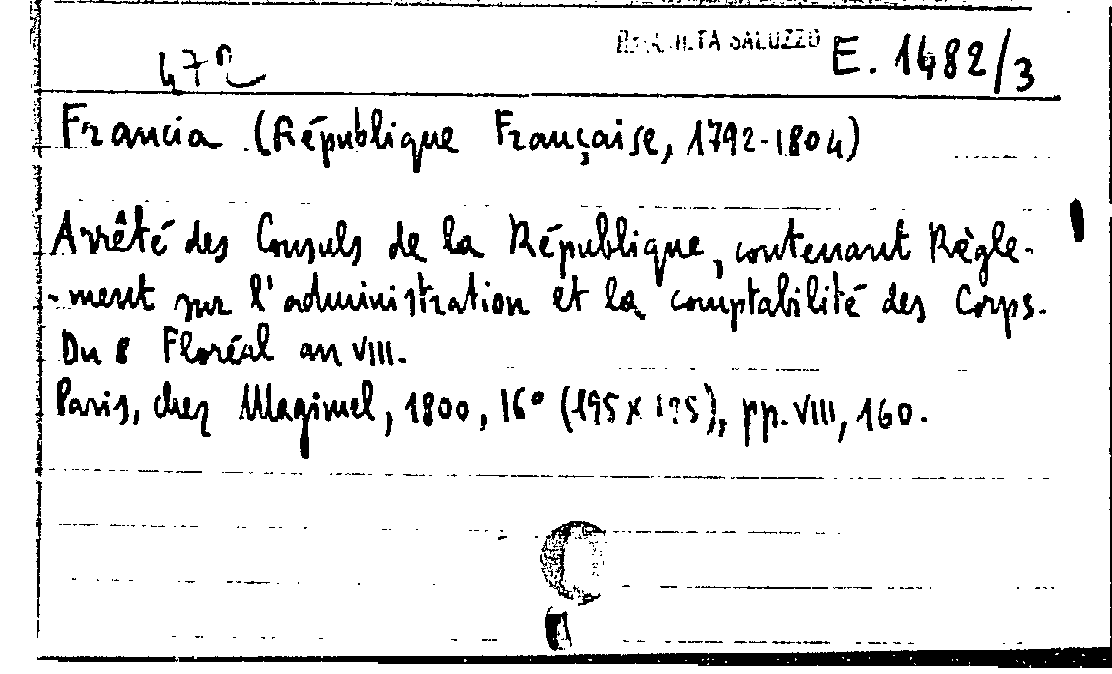 472 RACCOLTA SALUZZO E. 1482/3
Francia (République Française, 1792-1804)
Arrêté des Consuls de la République, contenant Règle-
-ment sur l'administration et la comptabilité des Corps.
Du 8 Floréal an VIII.
Paris, chez Magimel, 1800, 16° (195 x 125), pp. VIII, 160.